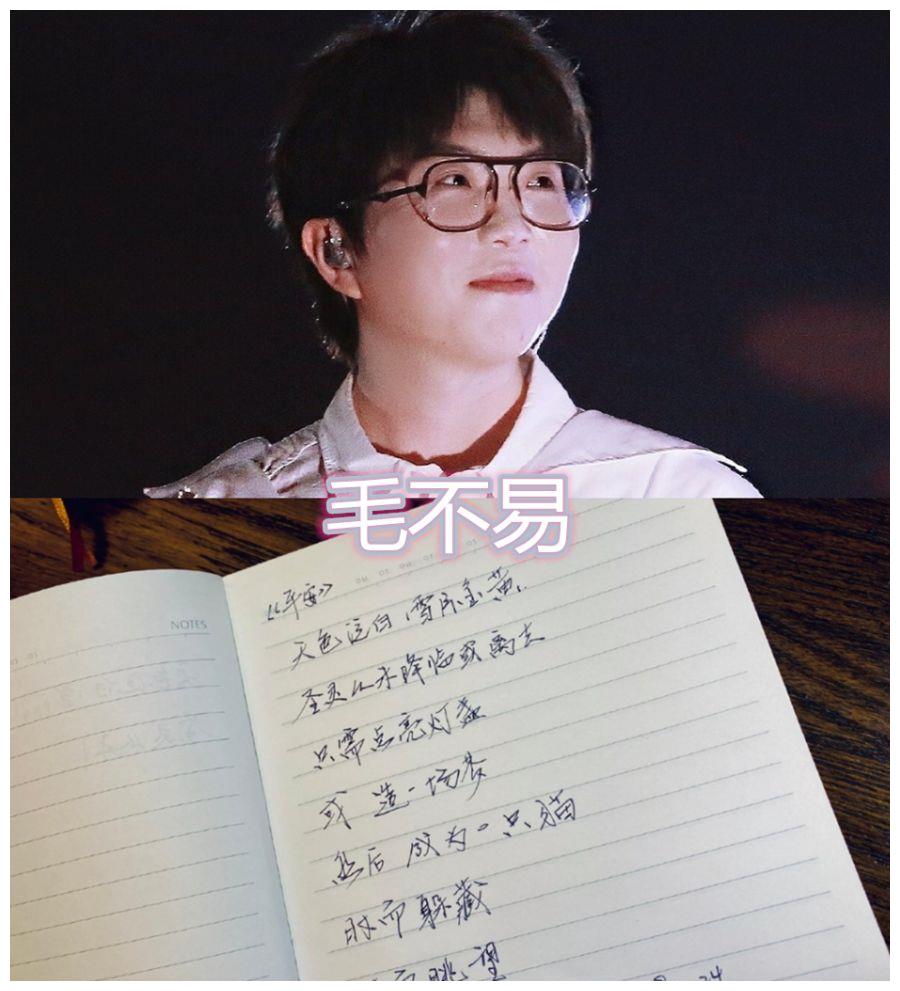 毛不易
NOTES
《平安》
天色泛白,雪原金黄
圣灵从未降临或离去
只需点亮灯盏
或造一场梦
然后成为一只猫
时而躲藏
而眺望
24